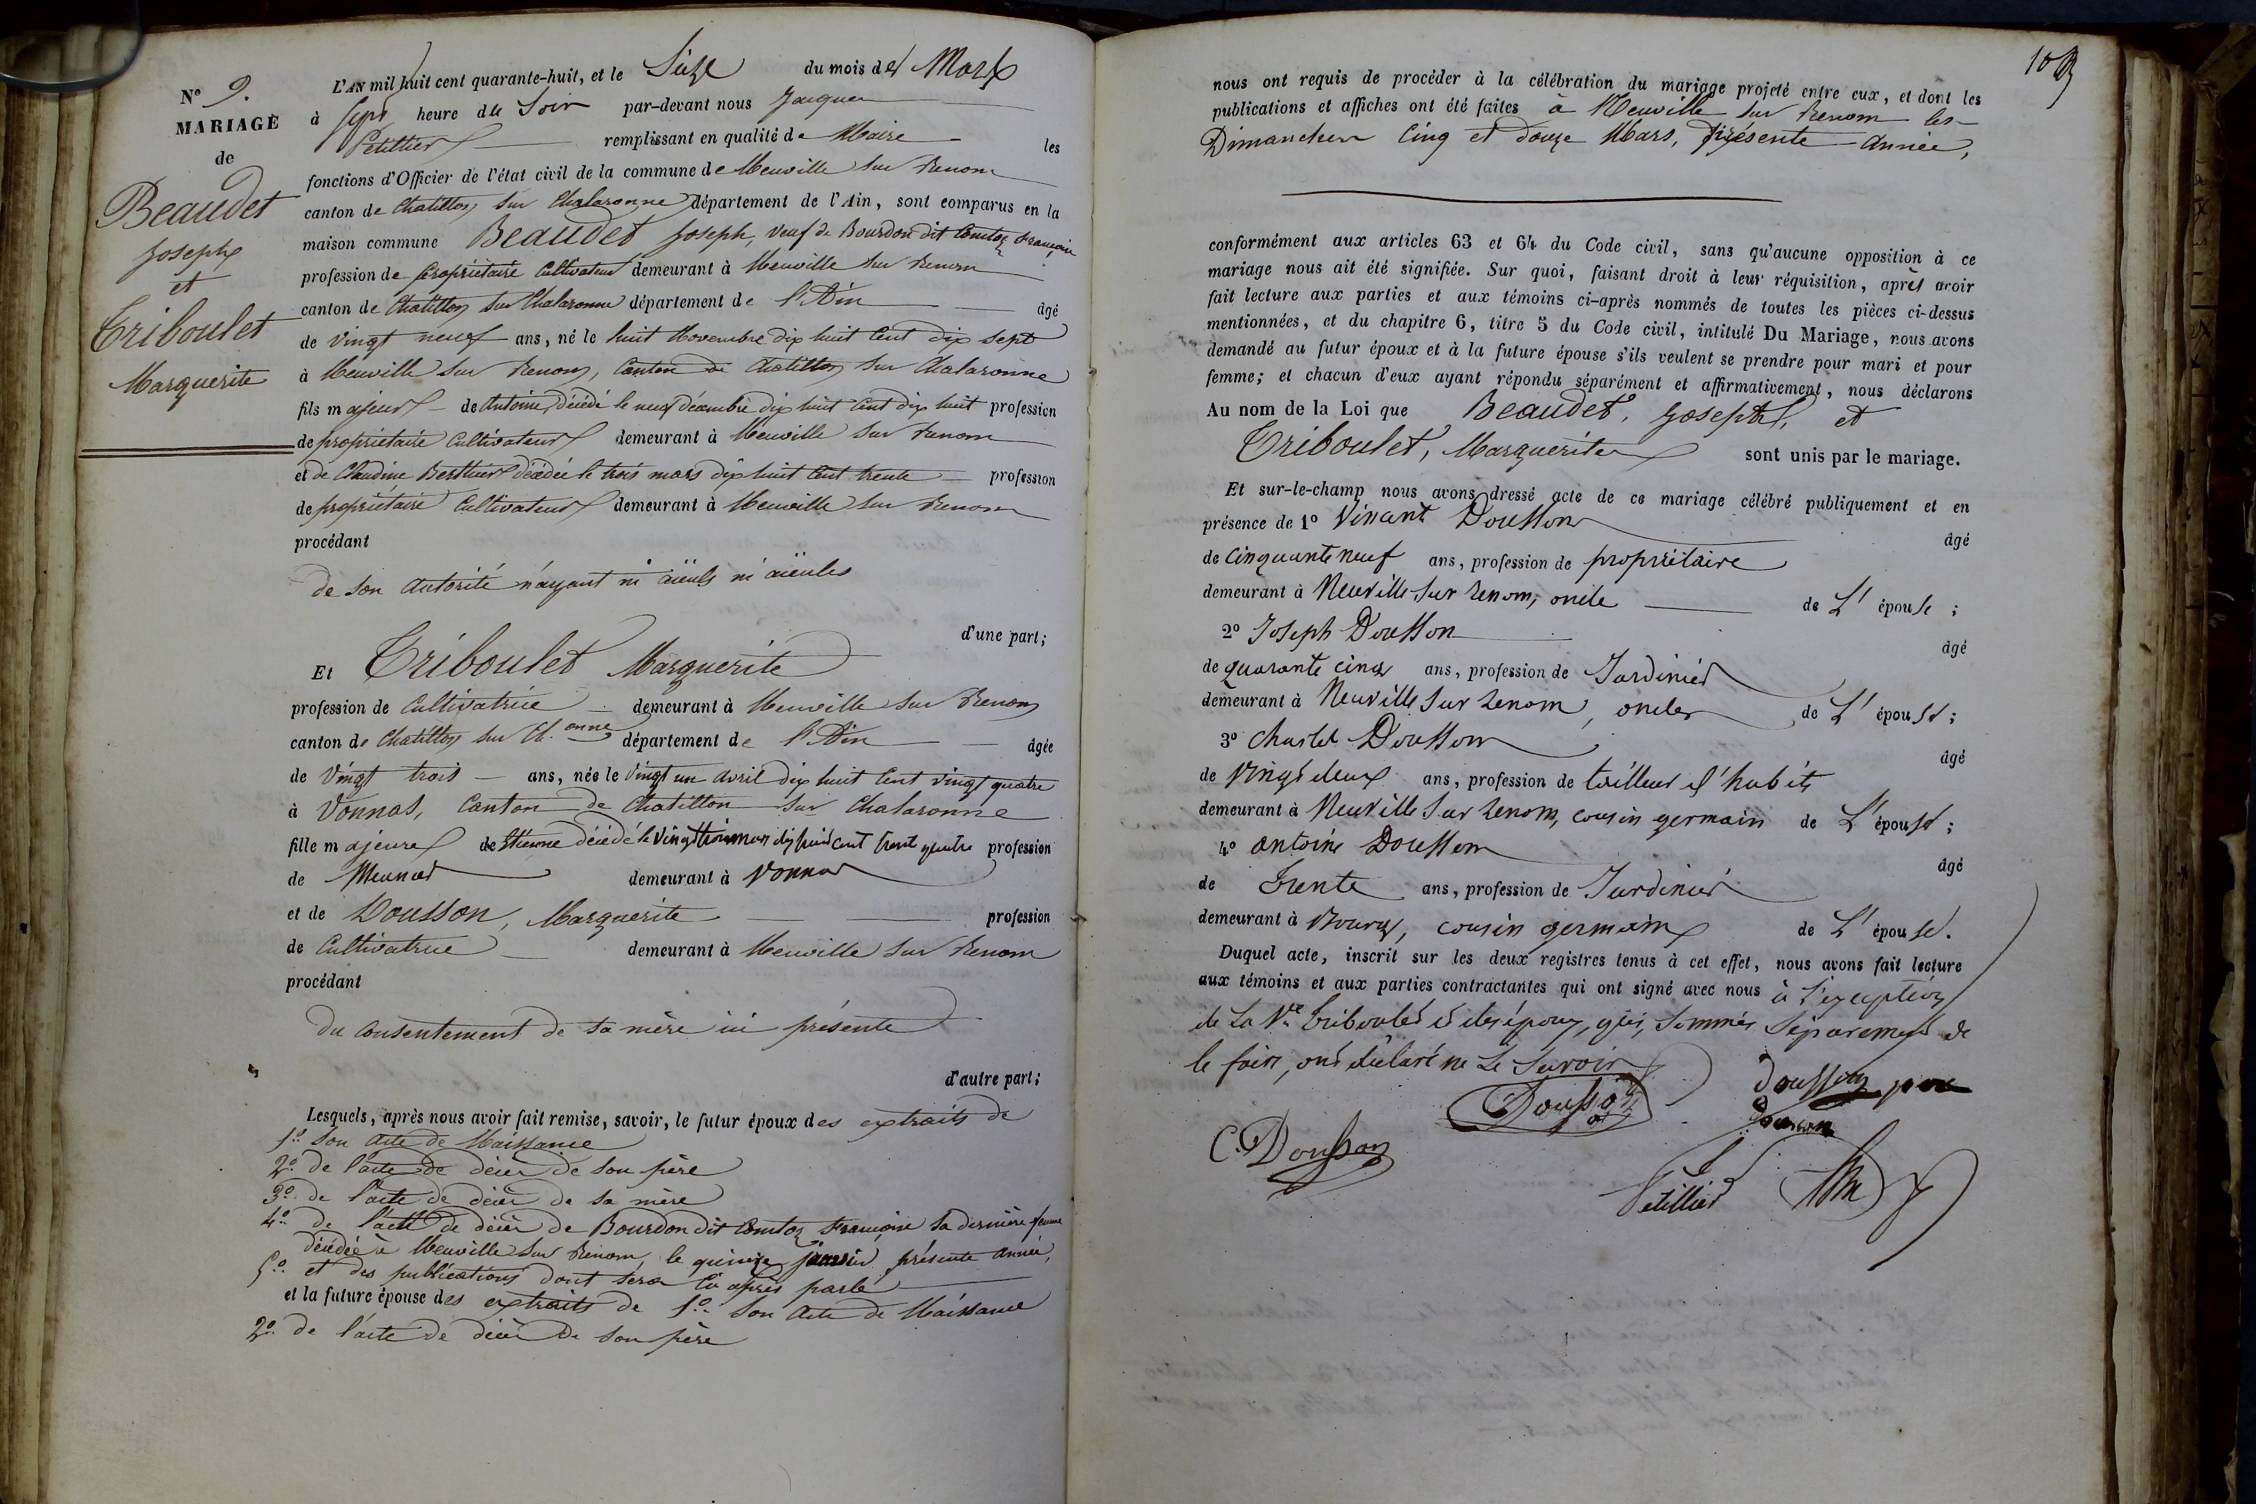 N° 9.
MARIAGE
de
Beaudet
Joseph
et
Triboulet
Marguerite
L'AN mil huit cent quarante-huit, et le Seize du mois de Mars
à Sept heure du Soir par-devant nous Jacques
Petillier remplissant en qualité de Maire les
fonctions d'Officier de l'état civil de la commune de Neuville sur Renom
canton de Chatillon sur Chalaronne département de l'Ain, sont comparus en la
maison commune Beaudet Joseph, veuf de Bourdon dit Comtoz Françoise
profession de propriétaire Cultivateur demeurant à Neuville sur Renom
canton de Chatillon sur Chalaronne département de l'Ain âgé
de Vingt neuf ans, né le huit Novembre dix huit Cent dix sept
à Neuville sur Renom, Canton de Chatillon sur Chalaronne
fils majeur de Antoine décédé le neuf décembre dix huit Cent dix huit profession
de propriétaire Cultivateur demeurant à Neuville sur Renom
et de Claudine Berthier décédée le trois mars dix huit Cent trente profession
de propriétaire Cultivateur demeurant à Neuville sur Renom
procédant
de son autorité n'ayant ni aïeuls ni aïeules
d'une part;
Et Triboulet Marguerite
profession de Cultivatrice demeurant à Neuville sur Renom
canton de Chatillon sur Ch.onne département de l'Ain âgée
de Vingt trois ans, née le Vingt un avril dix huit Cent Vingt quatre
à Vonnas, Canton de Chatillon sur Chalaronne
fille majeure de Etienne décédé le Vingt trois mars dix huit cent trente quatre profession
de Meunier demeurant à Vonnas
et de Dousson, Marguerite profession
de Cultivatrice demeurant à Neuville sur Renom
procédant
du consentement de sa mère ici présente
d'autre part;
Lesquels, après nous avoir fait remise, savoir, le futur époux des extraits de
1° Son acte de Naissance
2° de l'acte de décès de son père
3° de l'acte de décès de sa mère
4° de l'acte de décès de Bourdon dit Comtoz Françoise sa dernière femme
décédée à Neuville sur Renom, le quinze janvier, présente année,
5° et des publications dont sera ci après parlé
et la future épouse des extraits de 1° Son Acte de Naissance
2° de l'acte de décès de son père
nous ont requis de procéder à la célébration du mariage projeté entre eux, et dont les
publications et affiches ont été faites à Neuville sur Renom les
Dimanches Cinq et douze Mars, présente année,
conformément aux articles 63 et 64 du Code civil, sans qu'aucune opposition à ce
mariage nous ait été signifiée. Sur quoi, faisant droit à leur réquisition, après avoir
fait lecture aux parties et aux témoins ci-après nommés de toutes les pièces ci-dessus
mentionnées, et du chapitre 6, titre 5 du Code civil, intitulé Du Mariage, nous avons
demandé au futur époux et à la future épouse s'ils veulent se prendre pour mari et pour
femme; et chacun d'eux ayant répondu séparément et affirmativement, nous déclarons
Au nom de la Loi que Beaudet, Joseph, et
Triboulet, Marguerite sont unis par le mariage.
Et sur-le-champ nous avons dressé acte de ce mariage célébré publiquement et en
présence de 1° Vincent Dousson âgé
de Cinquante neuf ans, profession de propriétaire
demeurant à Neuville sur renom, oncle de L'épouse;
2° Joseph Dousson âgé
de quarante cinq ans, profession de Jardinier
demeurant à Neuville sur renom, oncle de L'épouse;
3° Charles Dousson âgé
de Vingt deux ans, profession de tailleur d'habits
demeurant à Neuville sur renom, cousin germain de L'épouse;
4° Antoine Dousson âgé
de trente ans, profession de Jardinier
demeurant à Bourg, cousin germain de L'épouse.
Duquel acte, inscrit sur les deux registres tenus à cet effet, nous avons fait lecture
aux témoins et aux parties contractantes qui ont signé avec nous à l'exception
de la Ve triboulet et des époux, qui, sommés séparément de
le faire, ont déclaré ne le savoir
Dousson
Dousson
C. Dousson
Petillier